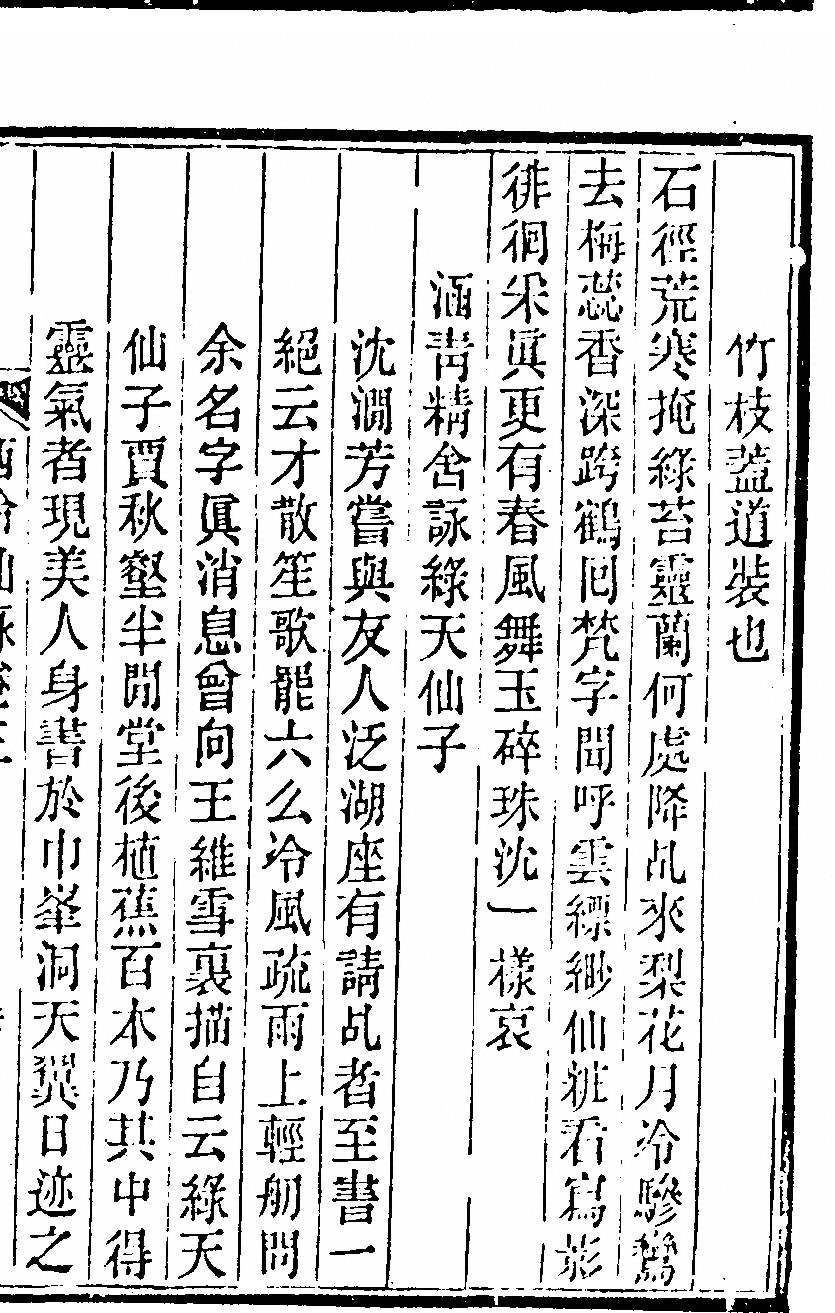 竹枝葢道裝也
石徑荒寒掩綠苔靈蘭何處降乩來梨花月冷驂鸞
去梅蕊香深跨鶴囘梵字聞呼雲縹緲仙粧看寫影
徘徊釆眞更有春風舞玉碎珠沈一樣哀
涵靑精舍詠綠天仙子
沈澗芳嘗與友人泛湖座有請乩者至書一
絕云才散笙歌龍六么冷風疏雨上輕舠問
余名字眞消息曾向王維雪裏描自云綠天
仙子賈秋壑半閒堂後植蕉百本乃其中得
靈氣者現美人身書於巾峯洞天翼日迹之
西泠仙詠卷三